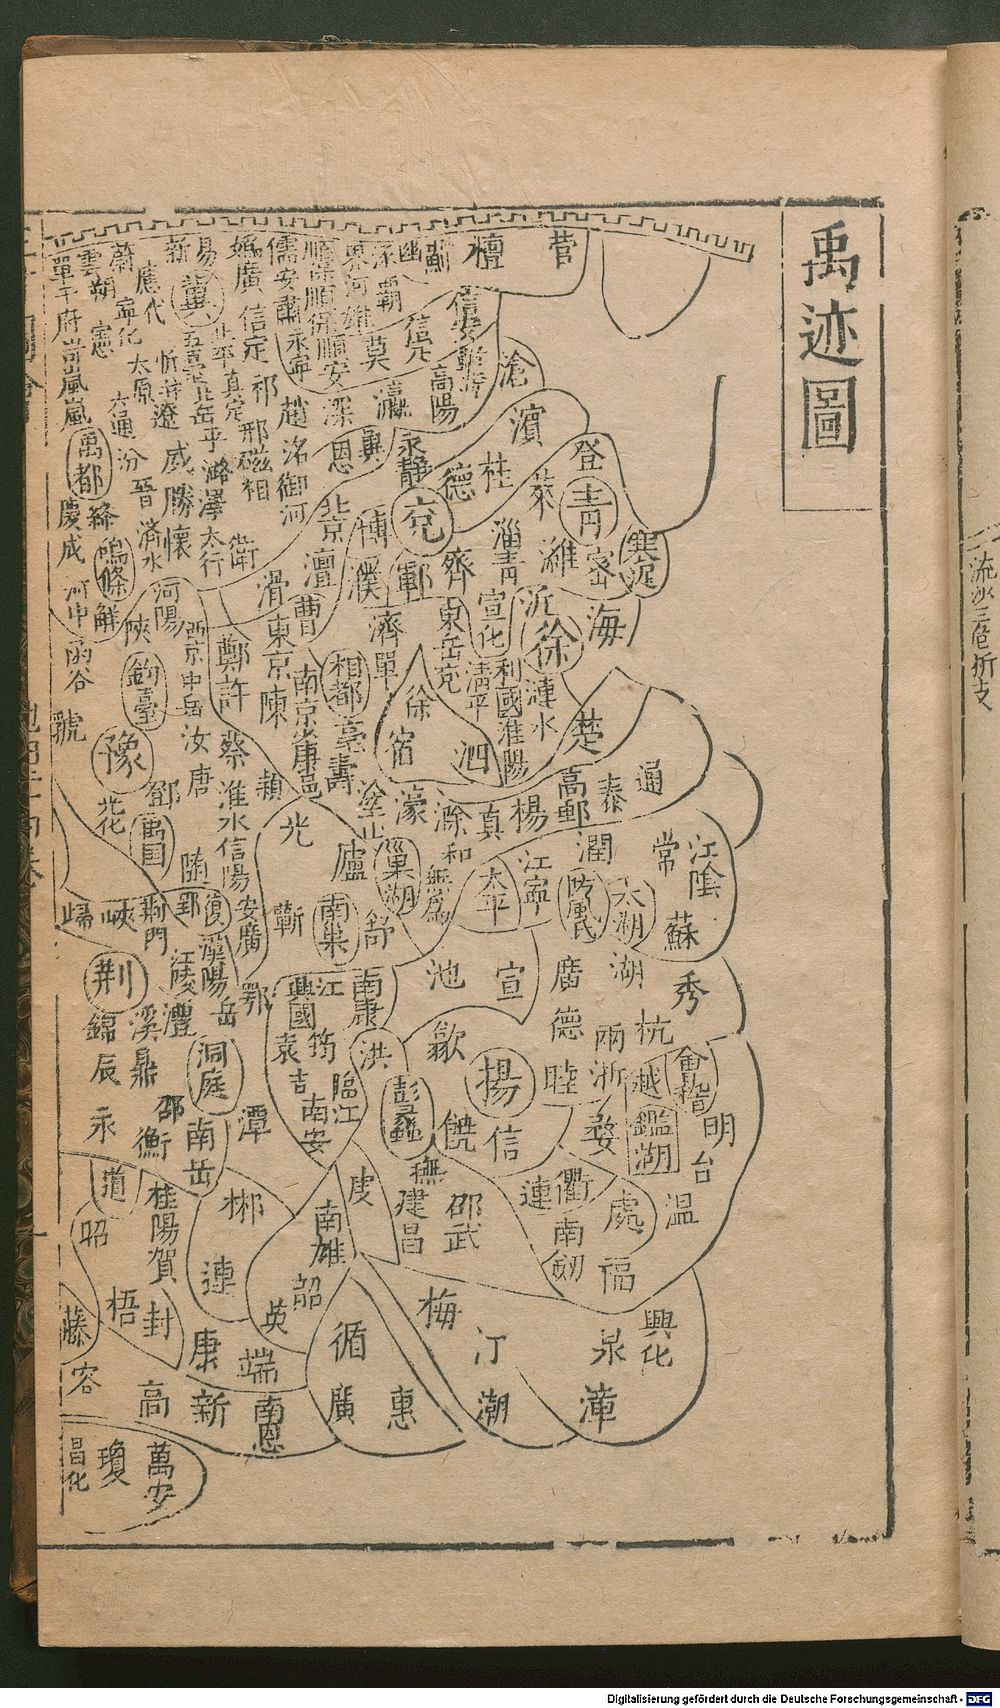 禹迹圖
營
檀
薊
幽
涿
易
新
蔚
雲朔
應代
寧化
憲
單于府
嵐
媯
廣信
儒
安肅
永寧
順安
霸
雄
莫
信安
滄
高陽
瀛
深
冀
冀
永靜
恩
趙
洺
御河
祁
邢
磁
相
真定
北岳
太原
忻
遼
威勝
平
潞
澤
太行
汾
晉
懷
禹都
絳
慶成
河中
解
鳴條
陝
河陽
衛
濱
登
青
密
萊
濰
淄青
德
兗
齊
博
濮
鄆
北京
澶
滑
曹
東京
陳
南京
濟
單
相都
亳
壽
東岳
兗
宣化
清平
利國
淮陽
漣水
近
徐
海
徐
宿
泗
楚
函谷
虢
鈞臺
豫
西京
中岳
汝
唐
鄭
許
蔡
潁
淮水
信陽
光
鄧
隨
郢
復
安
廣
塗山
濠
滁
和
真
楊
高郵
泰
通
無為
廬
巢湖
南巢
舒
蘄
太平
江寧
潤
防風氏
太湖
常
江陰
蘇
湖
秀
歸
峽
荊門
荊
江陵
漢陽
岳
鄂
澧
溪
錦
辰
鼎
洞庭
永
邵
衡
南岳
潭
興國
江
南康
袁
筠
吉
臨江
南安
洪
彭蠡
池
宣
廣德
歙
揚
睦
兩浙
杭
越
會稽
鑑湖
明
台
溫
饒
信
婺
衢
處
撫
建昌
邵武
連
南劒
福
虔
南雄
韶
英
道
桂陽
賀
郴
連
昭
梧
封
康
端
新
南恩
藤
容
高
循
廣
惠
梅
汀
潮
泉
漳
興化
昌化
瓊
萬安
Digitalisierung gefördert durch die Deutsche Forschungsgemeinschaft - DFG